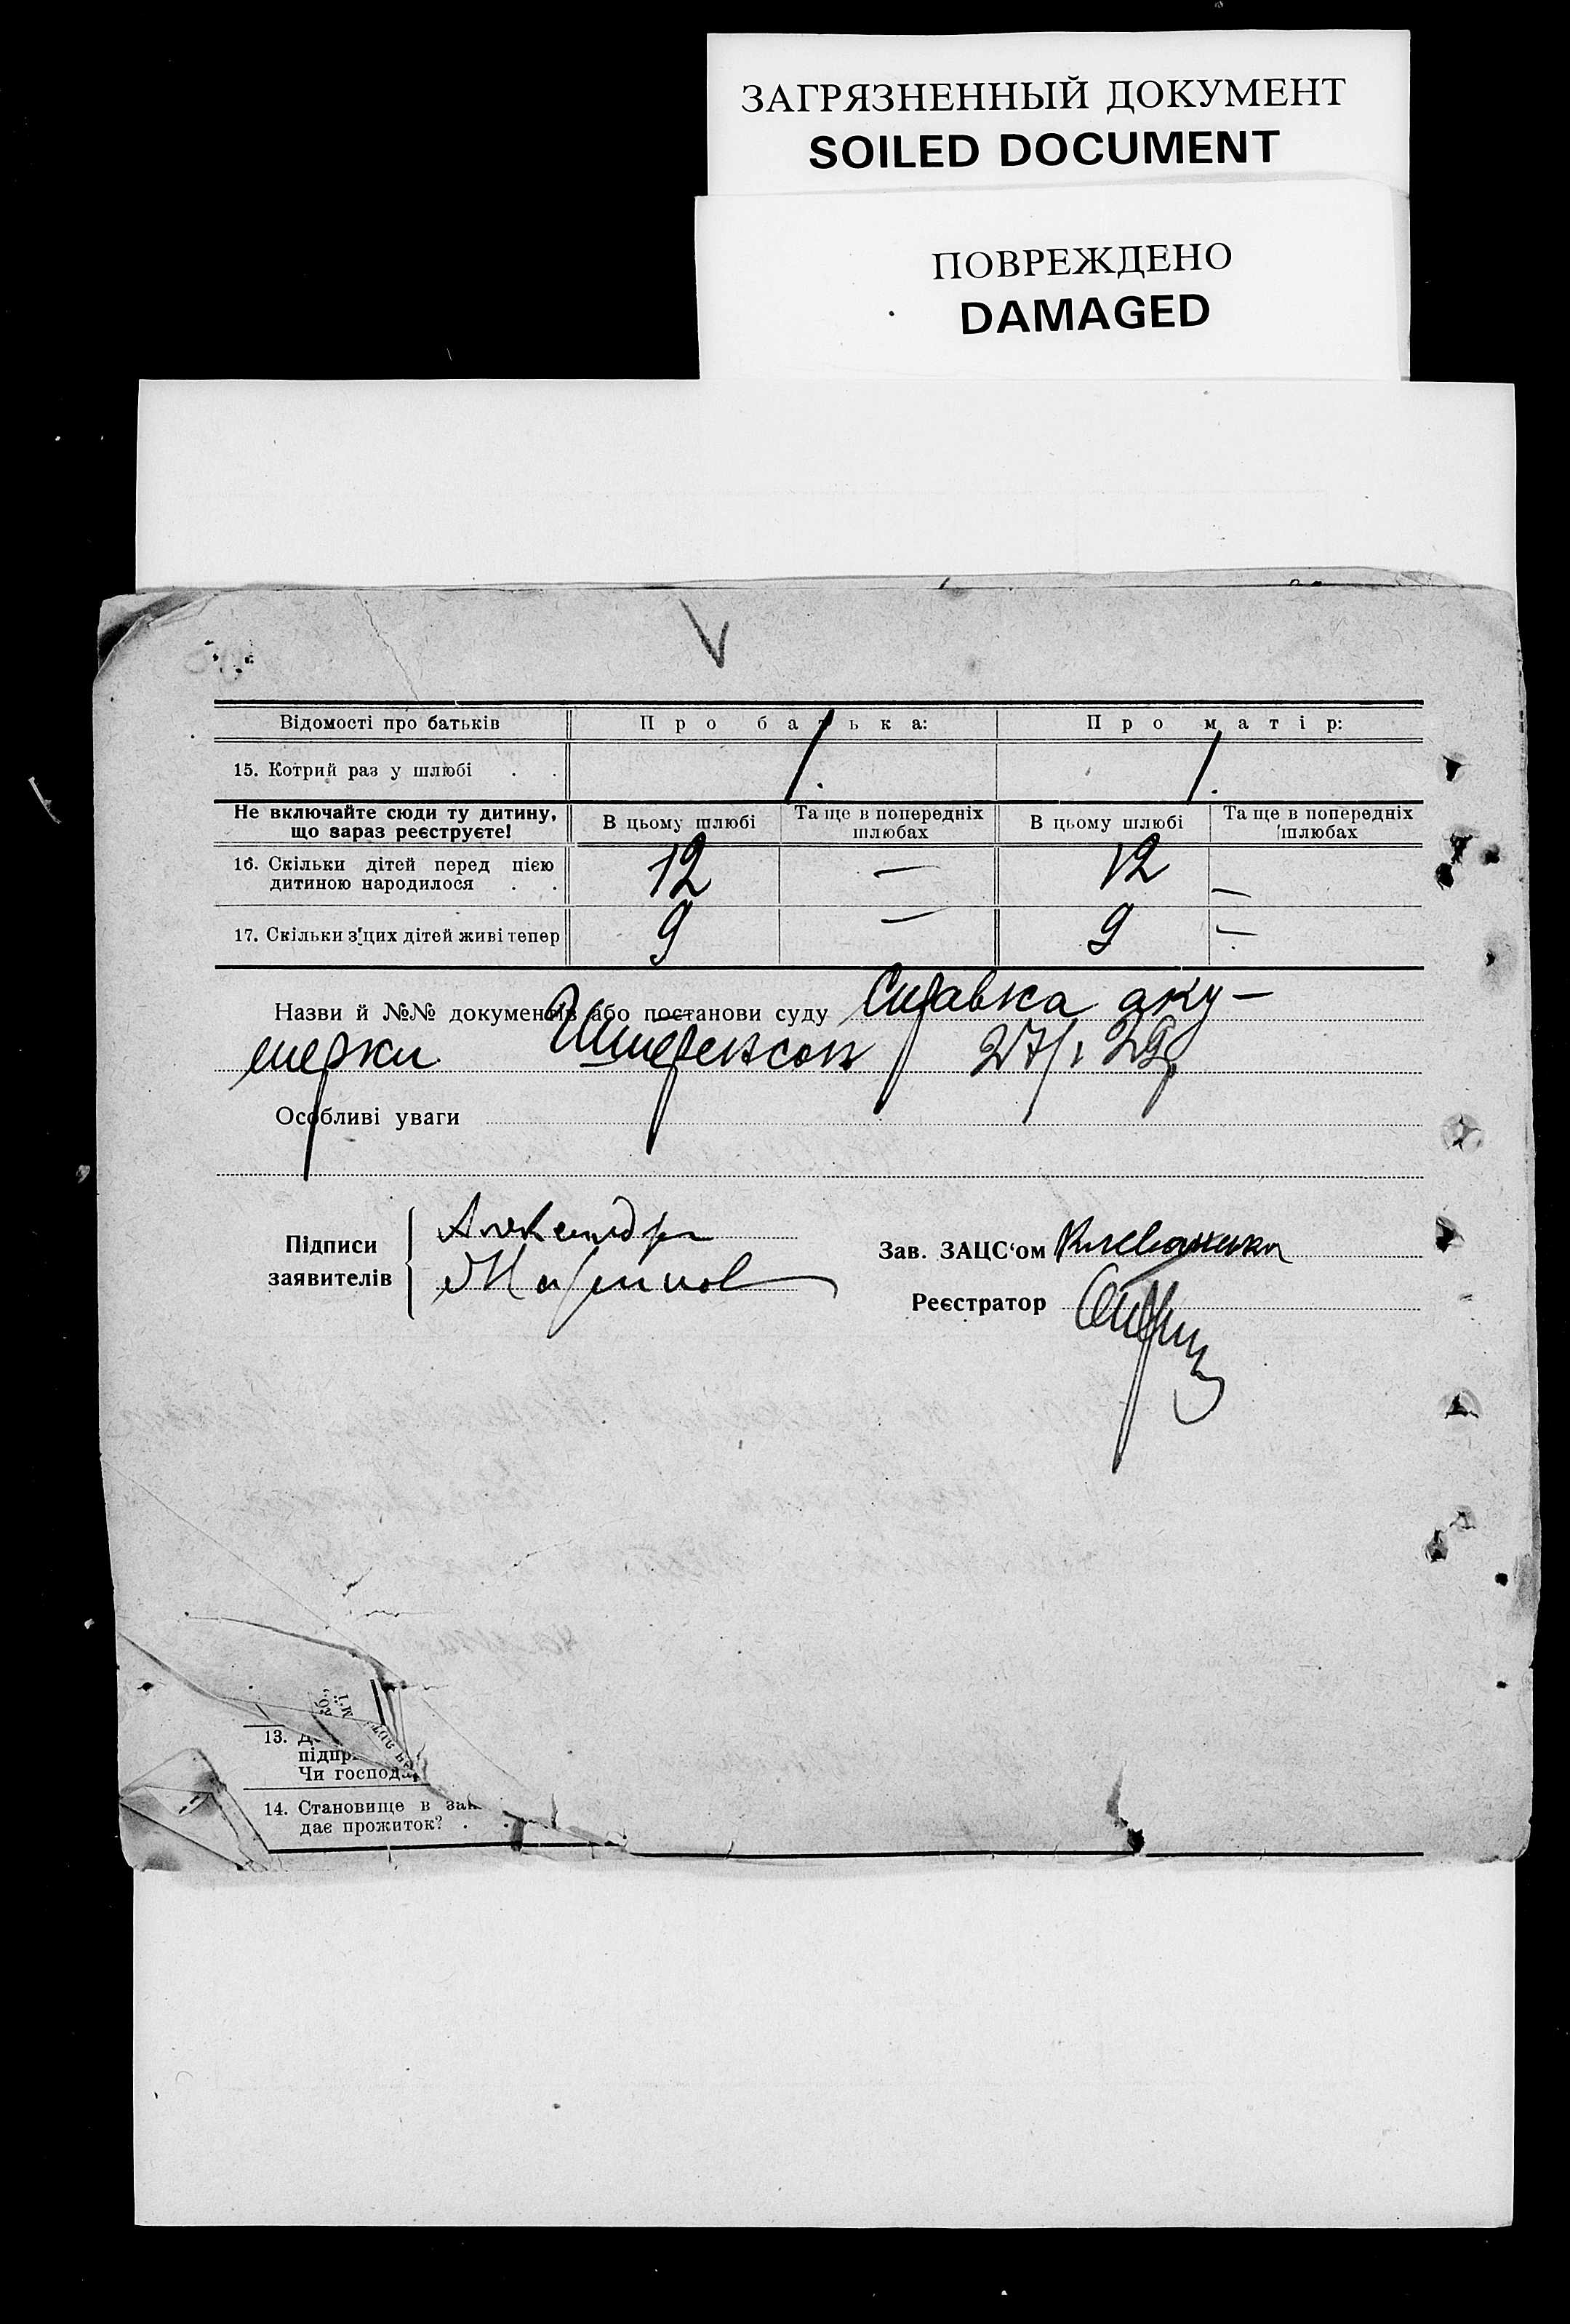 ЗАГРЯЗНЕННЫЙ ДОКУМЕНТ
SOILED DOCUMENT
ПОВРЕЖДЕНО
DAMAGED
Відомості про батьків Про батька: Про матір:
15. Котрий раз у шлюбі . . 1. 1.
Не включайте сюди ту дитину, що зараз реєструєте! В цьому шлюбі Та ще в попередніх шлюбах В цьому шлюбі Та ще в попередніх шлюбах
16. Скільки дітей перед цією
дитиною народилося . . 12 — 12 —
17. Скільки з цих дітей живі тепер 9 — 9 —
Назви й №№ документів або постанови суду Справка аку-
шерки 27/I 29
Особливі уваги
Підписи
заявителів
Александра
Зав. ЗАЦС'ом
Реєстратор
13.
підпр
Чи господа
14. Становище в зан
дає прожиток? .